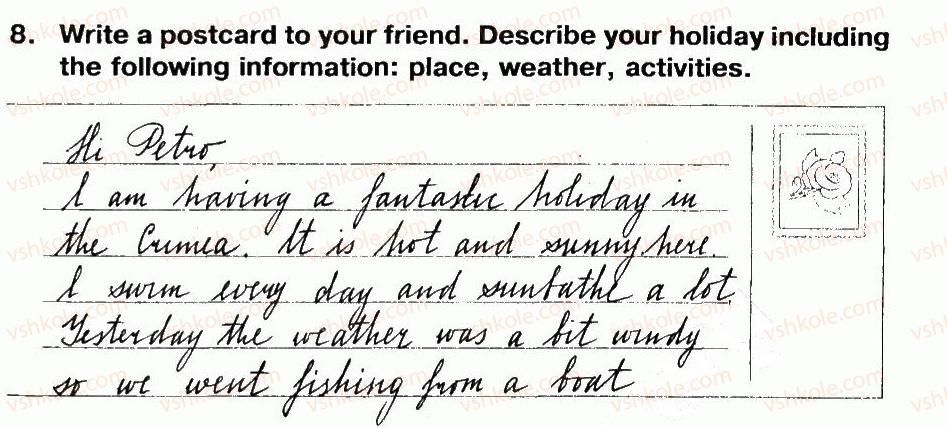 8. Write a postcard to your friend. Describe your holiday including
the following information: place, weather, activities.
Hi Petro,
I am having a fantastic holiday in
the Crimea. It is hot and sunny here.
I swim every day and sunbathe a lot.
Yesterday the weather was a bit windy
so we went fishing from a boat